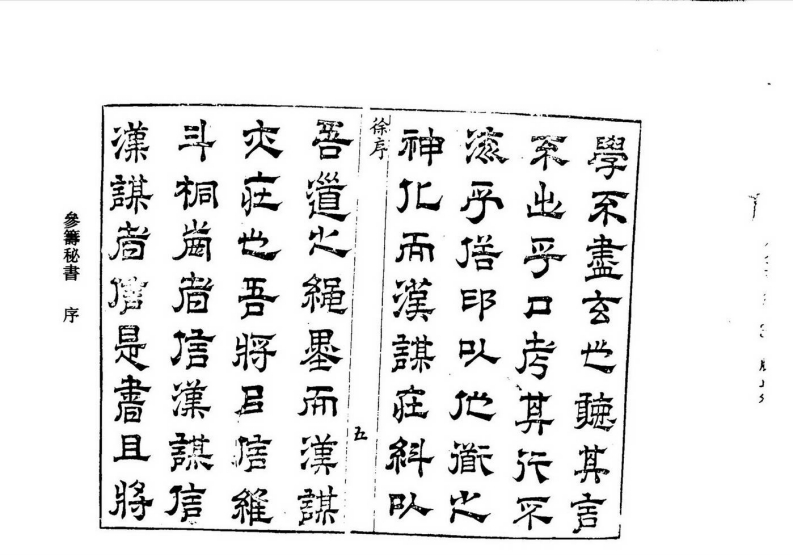 學不盡玄也聽其言
不出乎口考其行不
流乎俗印以他道之
神化而漢謀在糾以
徐序
五
吾道之繩墨而漢謀
亦在也吾將㠯信維
斗桐崗者信漢謀信
漢謀者信是書且將
參籌秘書 序